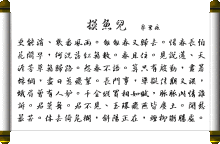 摸魚兒 辛棄疾
更能消、幾番風雨。匆匆春又歸去。惜春長怕
花開早，何況落紅無數。春且住。見說道、天
涯芳草無歸路。怨春不語。算只有殷勤，畫簷
蛛網，盡日惹飛絮。長門事，準擬佳期又誤。
蛾眉曾有人妒。千金縱買相如賦，脈脈此情誰
訴。君莫舞。君不見、玉環飛燕皆塵土。閒愁
最苦。休去倚危欄，斜陽正在，煙柳斷腸處。